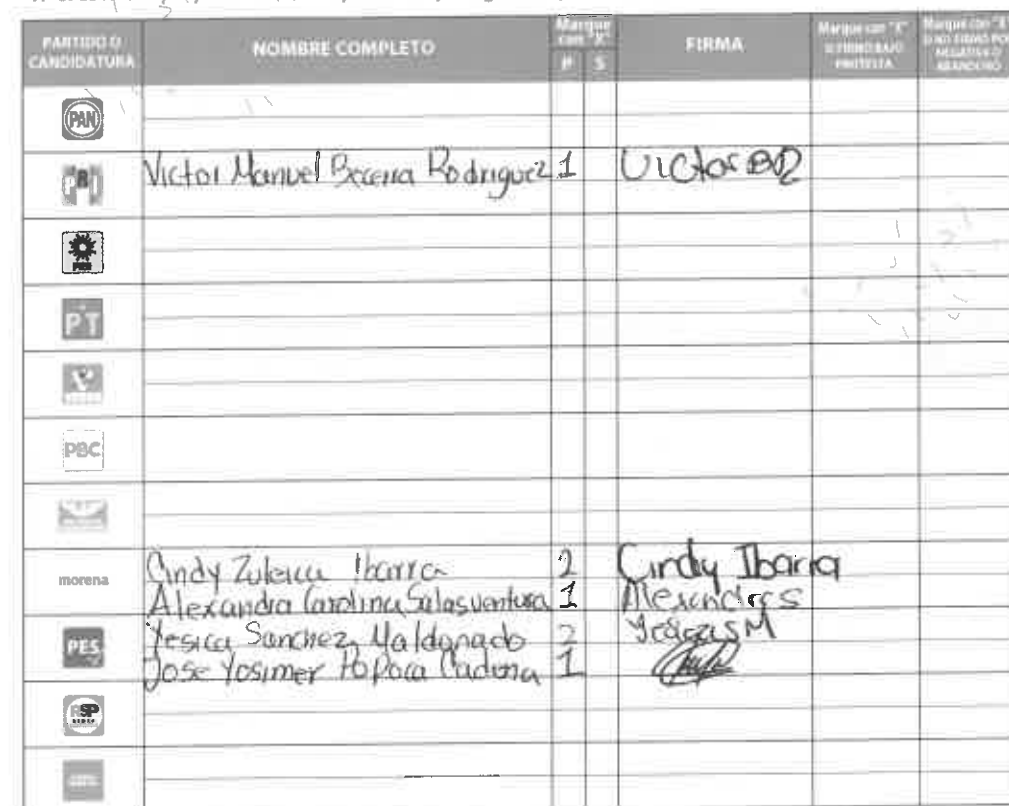 PARTIDO O CANDIDATURA
NOMBRE COMPLETO
Marque con "X"
P S
FIRMA
Marque con "X" SI FIRMÓ BAJO PROTESTA
Marque con "X" SI NO FIRMÓ POR NEGATIVA O ABANDONO
PAN
PRI Victor Manuel Becerra Rodriguez 1 Victor BR
PRD
PT
PBC
morena Cindy Zuleica Ibarra 2 Cindy Ibarra
Alexandra Carolina Salas ventura 1 Alexandra S
PES Yesica Sanchez Maldonado 2 Yesica SM
Jose Yosimer Popoca Cadena 1
RSP